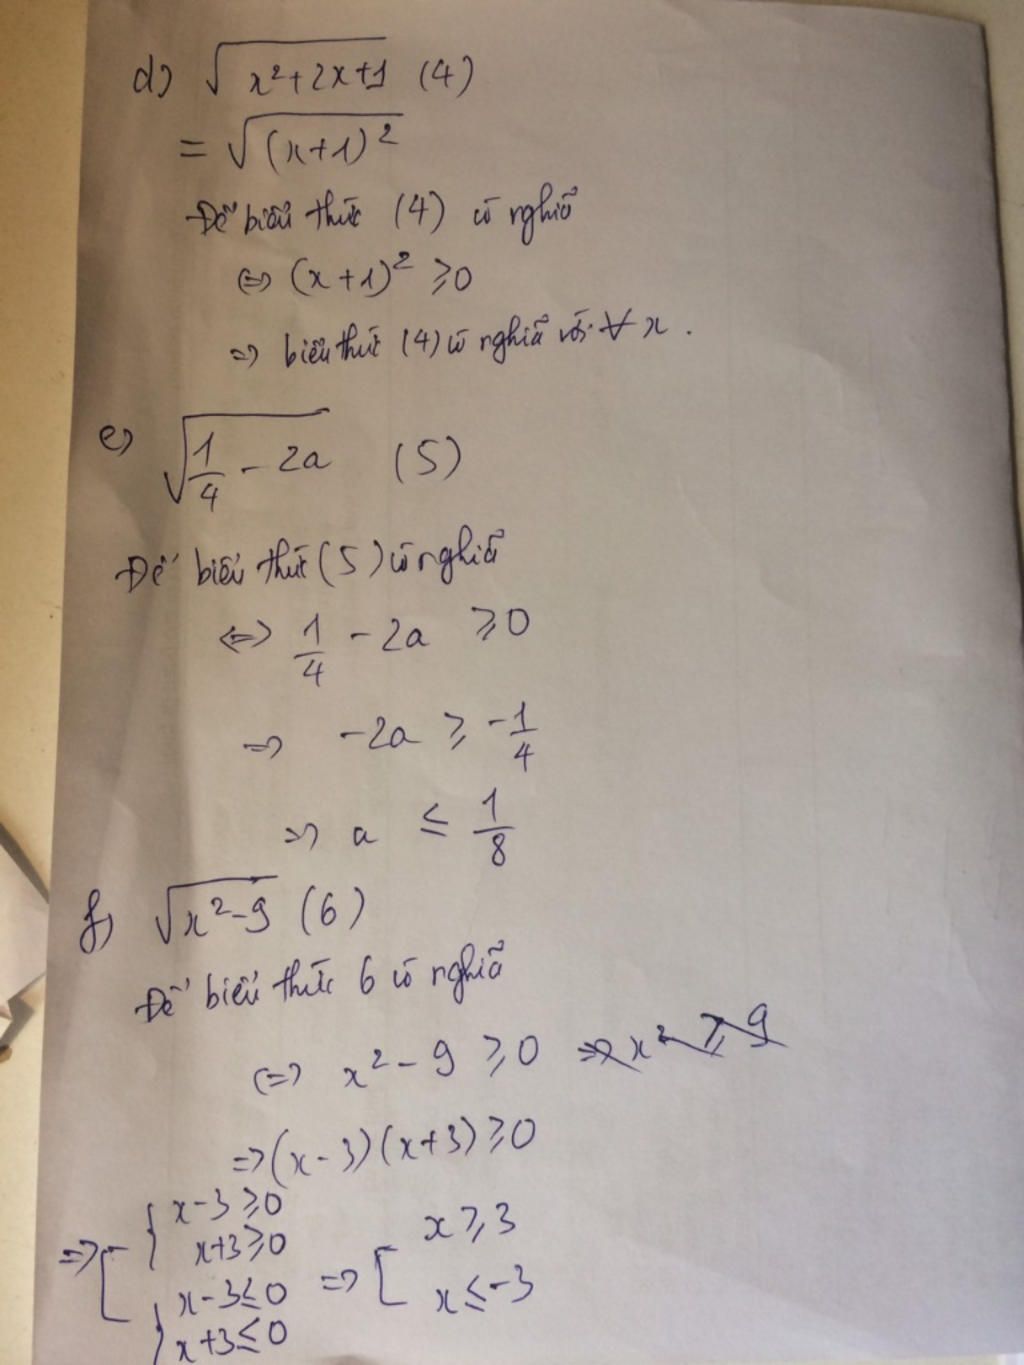 d) √(x²+2x+1) (4)
= √((x+1)²)
Để biểu thức (4) có nghĩa
⇔ (x+1)² ≥0
⇒ biểu thức (4) có nghĩa với ∀ x .
e) √(1/4 - 2a) (5)
Để biểu thức (5) có nghĩa
⇔ 1/4 - 2a ≥0
⇒ -2a ≥ -1/4
⇒ a ≤ 1/8
f) √(x²-9) (6)
Để biểu thức 6 có nghĩa
⇔ x² - 9 ≥0 ⇒ x² ≥ 9
⇒ (x-3)(x+3) ≥0
⇒ [ { x-3 ≥0
x+3 ≥0
{ x-3 ≤0
x+3 ≤0
⇒ [ x ≥ 3
x ≤ -3